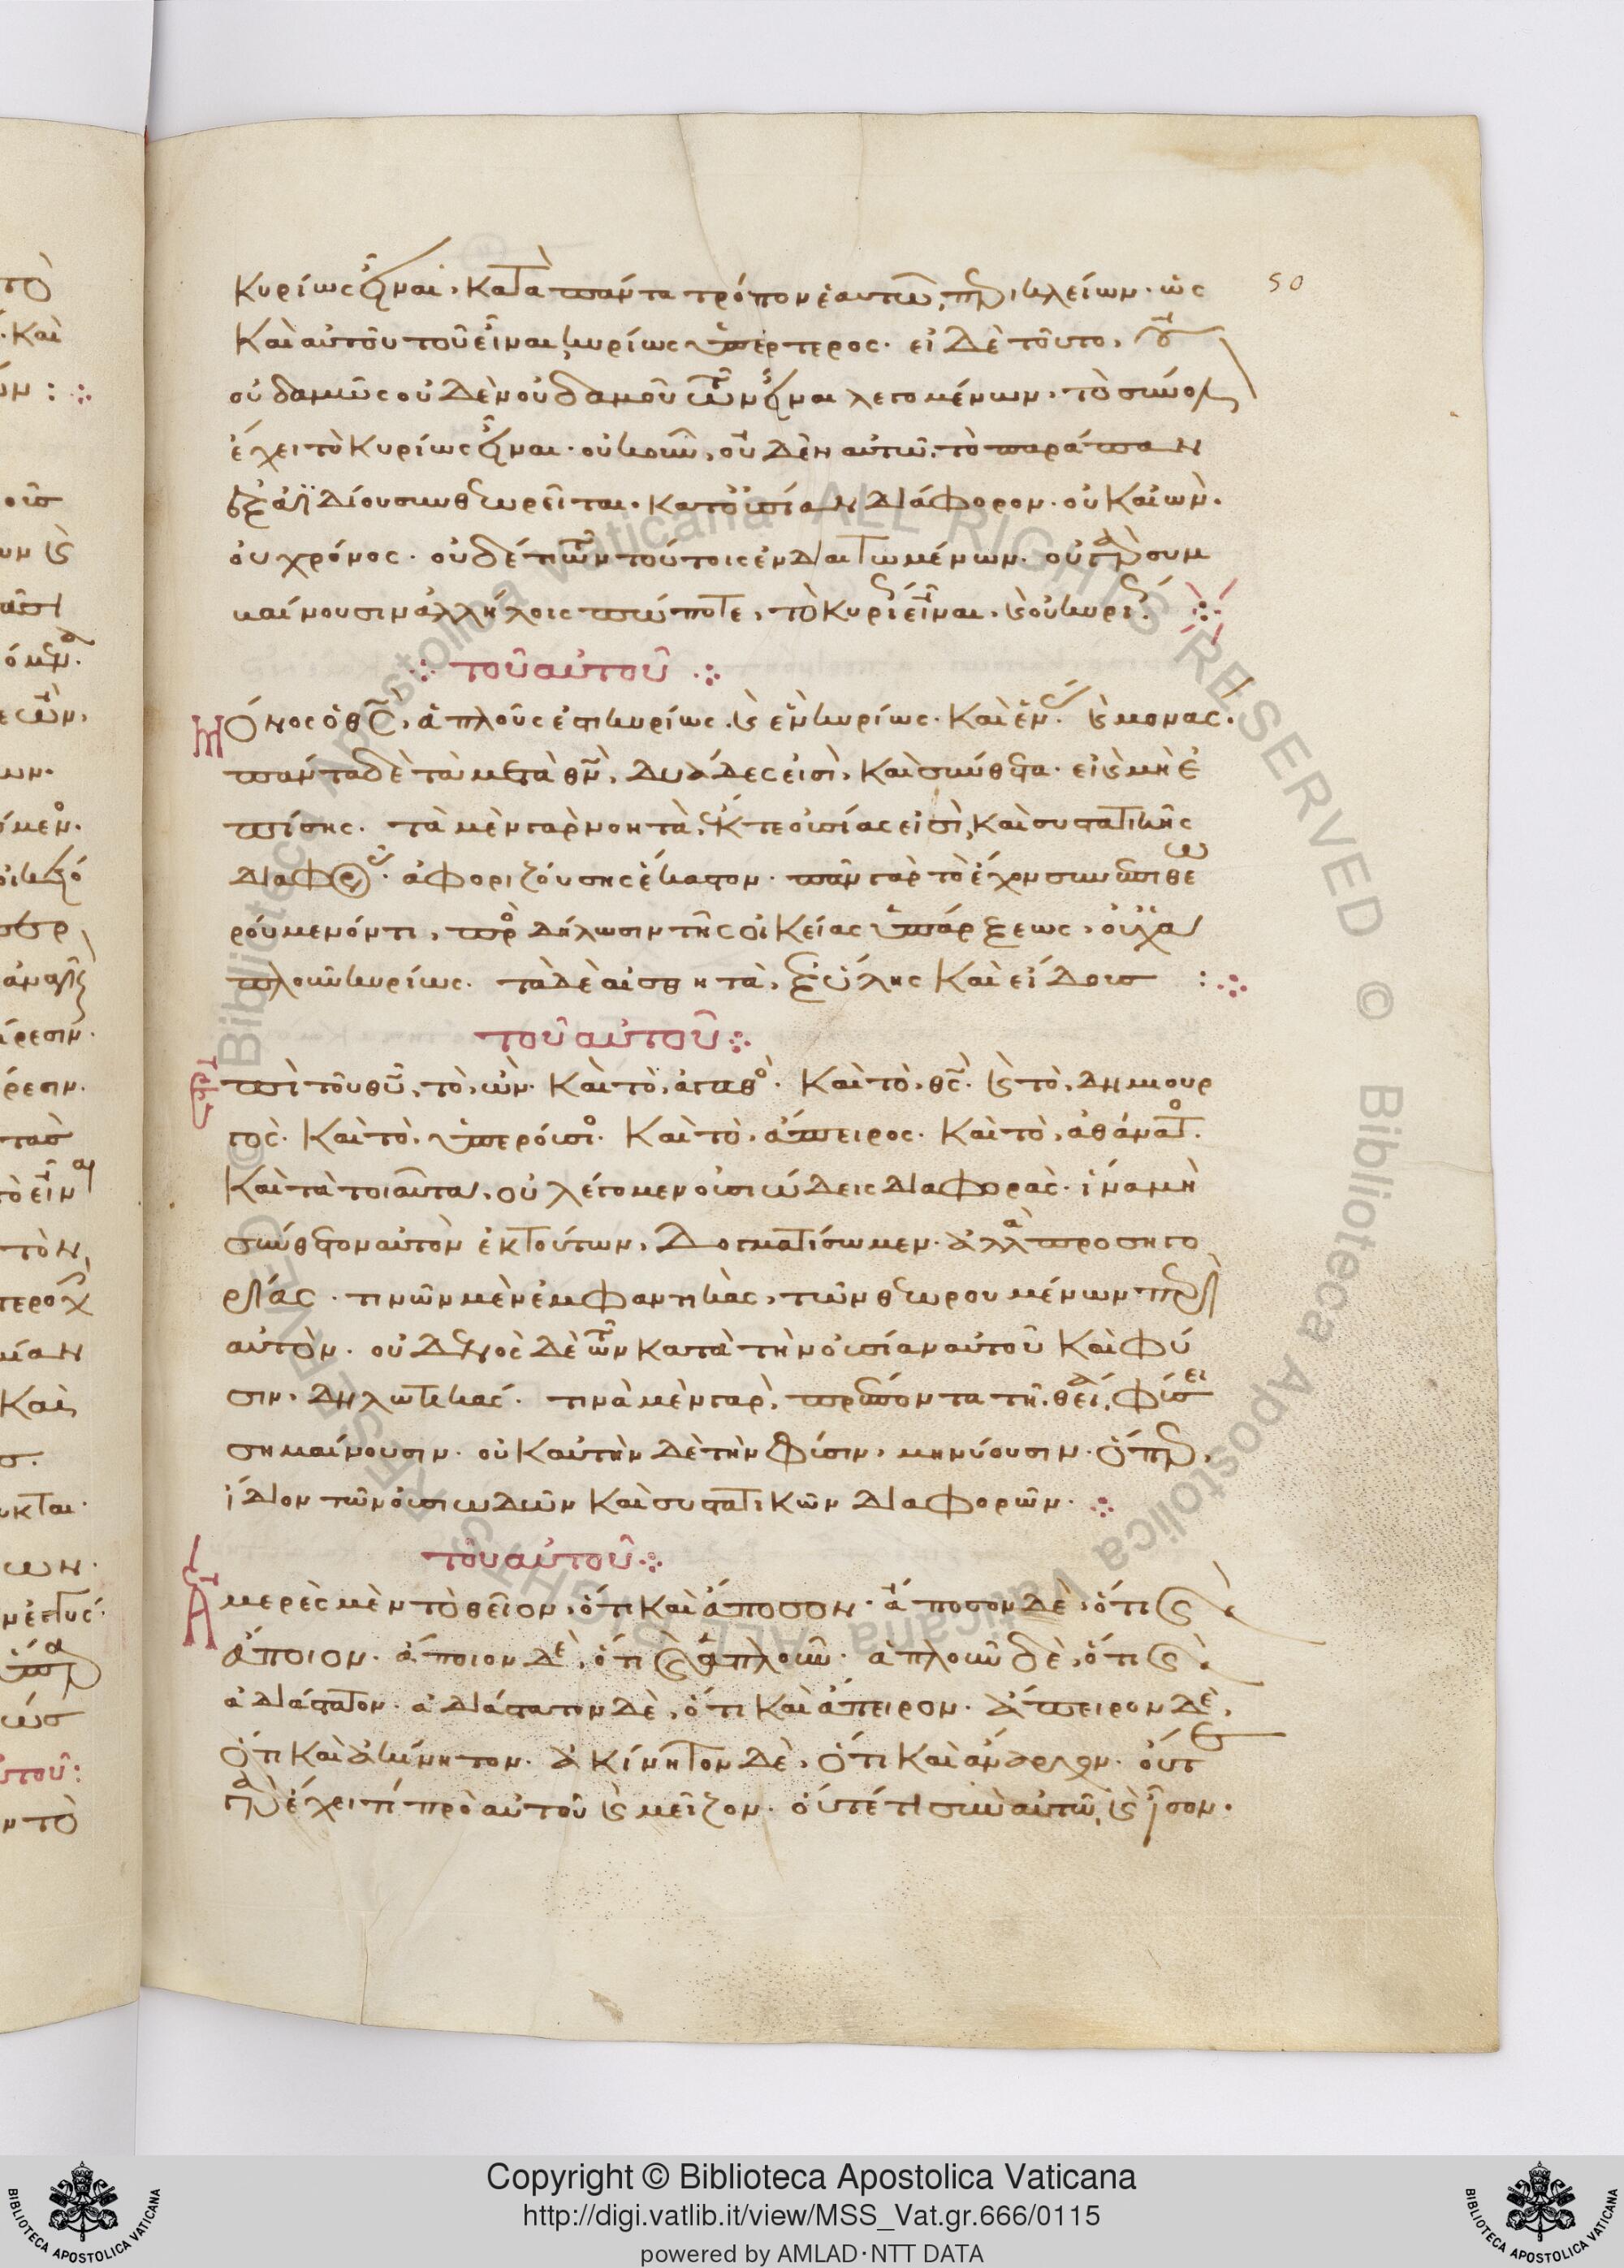 50
κυρίως εἶναι, κατὰ πάντα τρόπον ἑαυτῷ περικλείων. ὡς
καὶ αὐτοῦ τοῦ εἶναι κυρίως ὑπέρτερος. εἰ δὲ τοῦτο,
οὐδαμῶς οὐδὲν οὐδαμοῦ τῶν εἶναι λεγομένων, τὸ σύνολον
ἔχει τὸ κυρίως εἶναι. οὐκοῦν, οὐδὲν αὐτῷ τὸ παράπαν
ἐξ ἀϊδίου συνθεωρεῖται κατ' οὐσίαν διάφορον. οὐκ αἰών.
οὐ χρόνος. οὐδέ τι τῶν τούτοις ἐνδιαιτωμένων. οὐ γὰρ συμ
βαίνουσιν ἀλλήλοις πώποτε, τὸ κυρίως εἶναι, καὶ οὐ κυρίως
τοῦ αὐτοῦ
Μόνος ὁ θς, ἁπλοῦς ἐστι κυρίως. καὶ ἓν κυρίως. καὶ ἕν. καὶ μονάς.
πάντα δὲ τὰ μετὰ θν, δυάδες εἰσὶ, καὶ σύνθετα. εἰ καὶ μὴ ἐ
πίσης. τὰ μὲν γὰρ νοητὰ, ἔκ τε οὐσίας εἰσὶ, καὶ συστατικῆς
διαφορᾶς ἀφοριζούσης ἕκαστον. πᾶν γὰρ τὸ ἔχον συνεπιθεω
ρούμενόν τι, πρὸς δήλωσιν τῆς οἰκείας ὑπάρξεως, οὐχ ἁ
πλοῦν κυρίως. τὰ δὲ αἰσθητὰ, ἐξ ὕλης καὶ εἴδους
τοῦ αὐτοῦ
Ἐπὶ τοῦ θυ, τὸ, ὤν. καὶ τὸ, ἀγαθός. καὶ τὸ, θς. καὶ τὸ, δημιουρ
γός. καὶ τὸ, ὑπερούσιος. καὶ τὸ, ἄπειρος. καὶ τὸ, ἀθάνατος.
καὶ τὰ τοιαῦτα, οὐ λέγομεν οὐσιώδεις διαφοράς. ἵνα μὴ
σύνθετον αὐτὸν ἐκ τούτων, δογματίσωμεν. ἀλλὰ προσηγο
ρίας. τινῶν μὲν ἐμφαντικὰς, τῶν θεωρουμένων περὶ
αὐτόν. οὐδενὸς δὲ τῶν κατὰ τὴν οὐσίαν αὐτοῦ καὶ φύ
σιν, δηλωτικάς. τινὰ μὲν γὰρ, προσόντα τῇ θείᾳ φύσει
σημαίνουσιν. οὐκ αὐτὴν δὲ τὴν φύσιν, μηνύουσιν. ὅπερ,
ἴδιον τῶν οὐσιωδῶν καὶ συστατικῶν διαφορῶν.
τοῦ αὐτοῦ
Ἀμερὲς μὲν τὸ θεῖον, ὅτι καὶ ἄποσον. ἄποσον δὲ, ὅτι καὶ
ἄποιον. ἄποιον δὲ, ὅτι καὶ ἁπλοῦν. ἁπλοῦν δὲ, ὅτι καὶ
ἀδιάστατον. ἀδιάστατον δὲ, ὅτι καὶ ἄπειρον. ἄπειρον δὲ,
ὅτι καὶ ἀκίνητον. ἀκίνητον δὲ, ὅτι καὶ ἄναρχον. οὔτε
γὰρ ἔχει τί πρὸ αὐτοῦ καὶ μεῖζον. οὔτέ τι σὺν αὐτῷ, καὶ ἴσον.
Copyright © Biblioteca Apostolica Vaticana
http://digi.vatlib.it/view/MSS_Vat.gr.666/0115
powered by AMLAD·NTT DATA